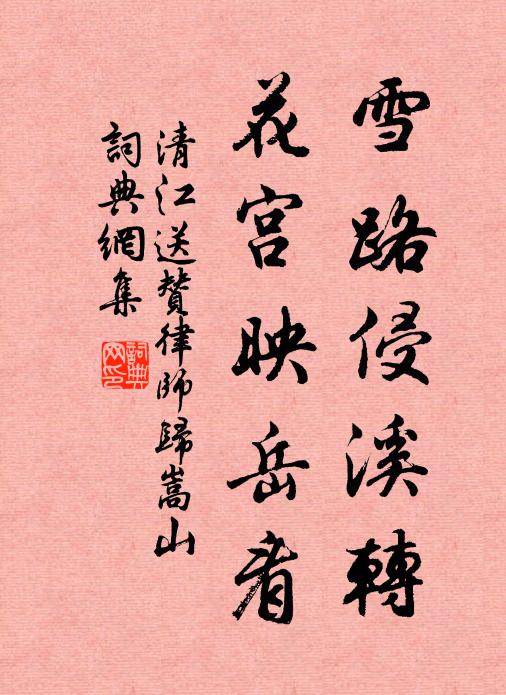 雪路侵溪轉
花宫映岳看
清江送贊律師歸嵩山
詞典網集
詞典
网印